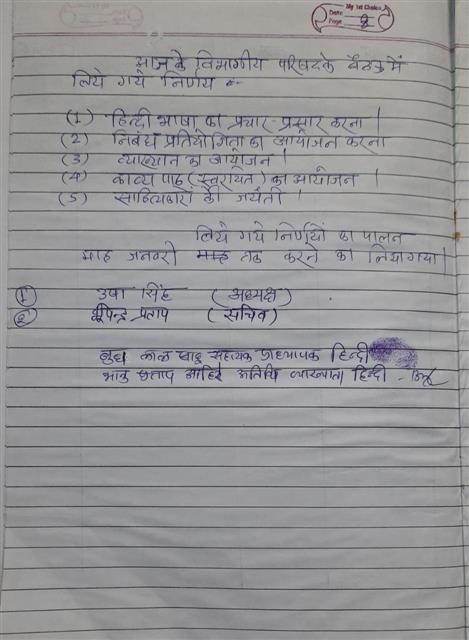 My 1st Choice
Date
Page 8
आज के विभागीय परिषद के बैठक में
लिये गये निर्णय :-
(1) हिन्दी भाषा का प्रचार-प्रसार करना ।
(2) निबंध प्रतियोगिता का आयोजन करना
(3) व्याख्यान का आयोजन ।
(4) काव्य पाठ (स्वरचित) का आयोजन ।
(5) साहित्यकारों की जयंती ।
लिये गये निर्णयों का पालन
माह जनवरी तक करने का लिया गया।
① उषा सिंह (अध्यक्ष)
② भूपेन्द्र प्रताप (सचिव)
सहायक प्राध्यापक हिन्दी
भानु प्रताप आहिरे अतिथि व्याख्याता हिन्दी -